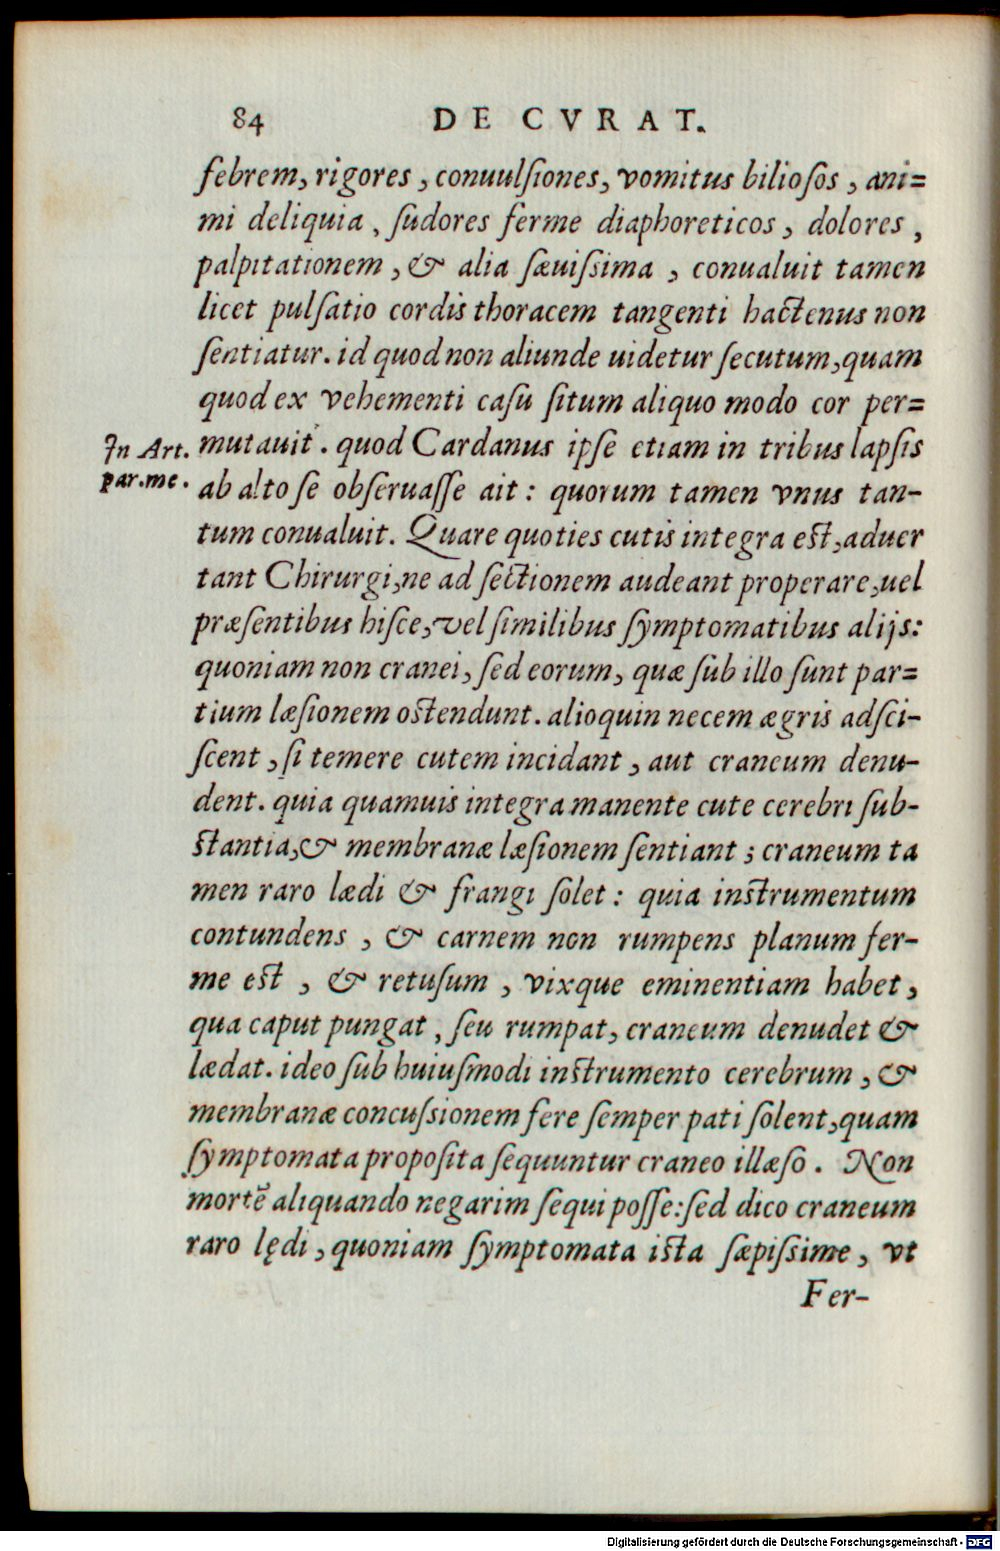 84 DE CVRAT.
febrem, rigores, conuulſiones, vomitus bilioſos, ani=
mi deliquia, ſudores ferme diaphoreticos, dolores,
palpitationem, & alia ſæuiſsima, conualuit tamen
licet pulſatio cordis thoracem tangenti hactenus non
ſentiatur. id quod non aliunde uidetur ſecutum, quam
quod ex vehementi caſu ſitum aliquo modo cor per=
In Art. mutauit. quod Cardanus ipſe etiam in tribus lapſis
par. me. ab alto ſe obſeruaſſe ait: quorum tamen vnus tan-
tum conualuit. Quare quoties cutis integra eſt, aduer
tant Chirurgi, ne ad ſectionem audeant properare, uel
præſentibus hiſce, vel ſimilibus ſymptomatibus alijs:
quoniam non cranei, ſed eorum, quæ ſub illo ſunt par=
tium læſionem oſtendunt. alioquin necem ægris adſci-
ſcent, ſi temere cutem incidant, aut craneum denu-
dent. quia quamuis integra manente cute cerebri ſub-
ſtantia, & membranæ læſionem ſentiant; craneum ta
men raro lædi & frangi ſolet: quia inſtrumentum
contundens, & carnem non rumpens planum fer-
me eſt, & retuſum, vixque eminentiam habet,
qua caput pungat, ſeu rumpat, craneum denudet &
lædat. ideo ſub huiuſmodi inſtrumento cerebrum, &
membranæ concuſsionem fere ſemper pati ſolent, quam
ſymptomata propoſita ſequuntur craneo illæſo. Non
mortē aliquando negarim ſequi poſſe: ſed dico craneum
raro lędi, quoniam ſymptomata iſta ſæpiſsime, vt
Fer-
Digitalisierung gefördert durch die Deutsche Forschungsgemeinschaft - DFG